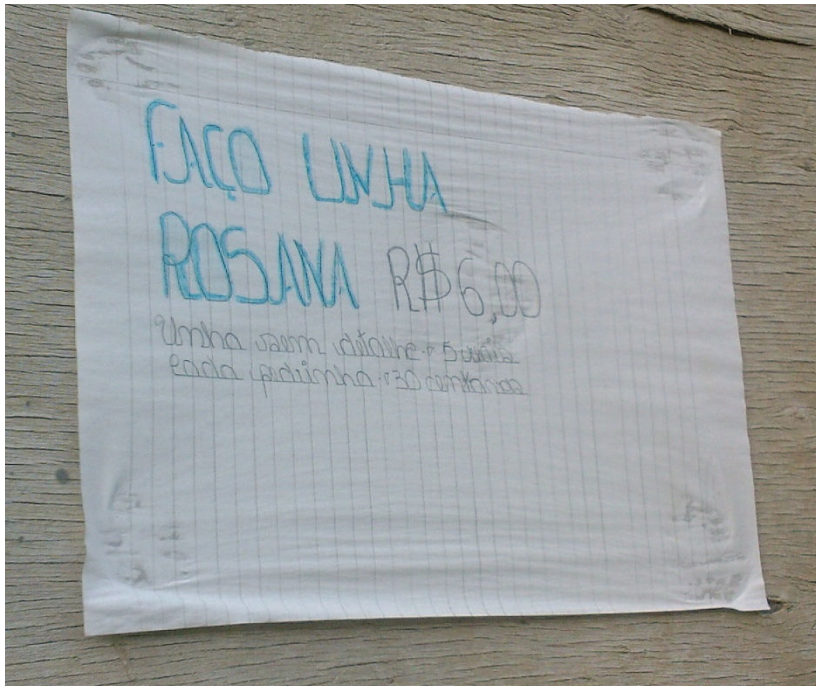 FAÇO UNHA
ROSANA R$6,00
Unha sem detalhe r 5 reais
Cada pedrinha r30 centavos